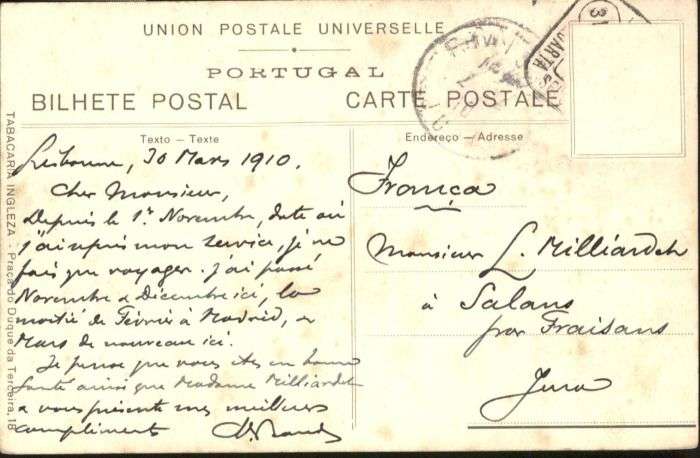 UNION POSTALE UNIVERSELLE
PORTUGAL
BILHETE POSTAL CARTE POSTALE
Texto — Texte
Lisbonne, 30 Mars 1910.
Cher Monsieur,
Depuis le 1er Novembre, date où
j'ai repris mon service, je ne
fais que voyager. J'ai passé
Novembre & Décembre ici, la
moitié de Février à Madrid, et
Mars de nouveau ici.
Je pense que vous êtes en bonne
santé ainsi que Madame Milliardet
& vous présente mes meilleurs
compliments
Endereço — Adresse
França
Monsieur L. Milliardet
à Salans
par Fraisans
Jura
TABACARIA INGLEZA - Praça do Duque da Terceira, 18